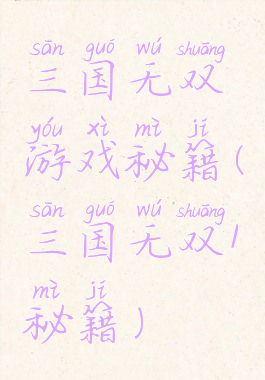 sān guó wú shuāng
三国无双
yóu xì mì jí
游戏秘籍(
sān guó wú shuāng
三国无双/
mì jí
秘籍)